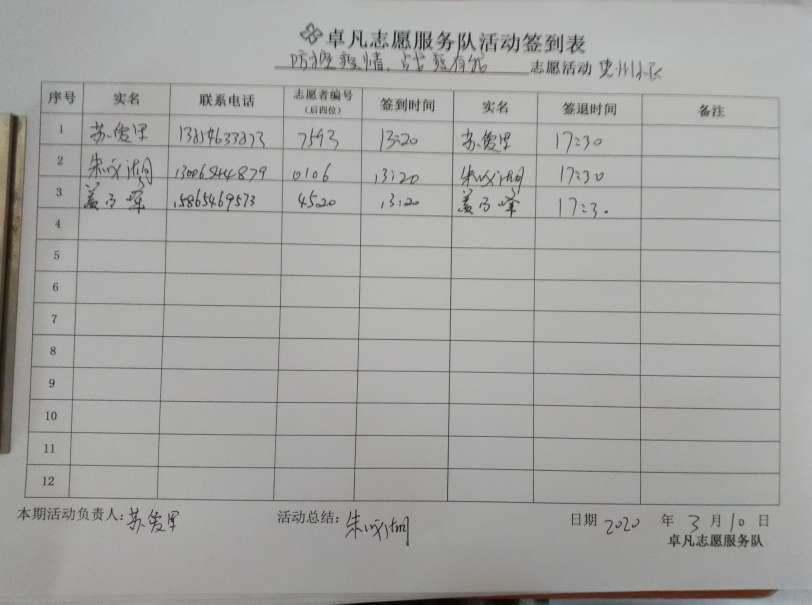 卓凡志愿服务队活动签到表
防控疫情 志愿活动
序号 实名 联系电话 志愿者编号（后四位） 签到时间 实名 签退时间 备注
1 苏俊军 7593 13:20 苏俊军 17:30
2 朱 0106 13:20 朱 17:30
3 姜 峰 15865469573 4520 13:20 姜 峰 17:30
4
5
6
7
8
9
10
11
12
本期活动负责人：苏俊军 活动总结：朱 日期 2020 年 3 月 10 日
卓凡志愿服务队